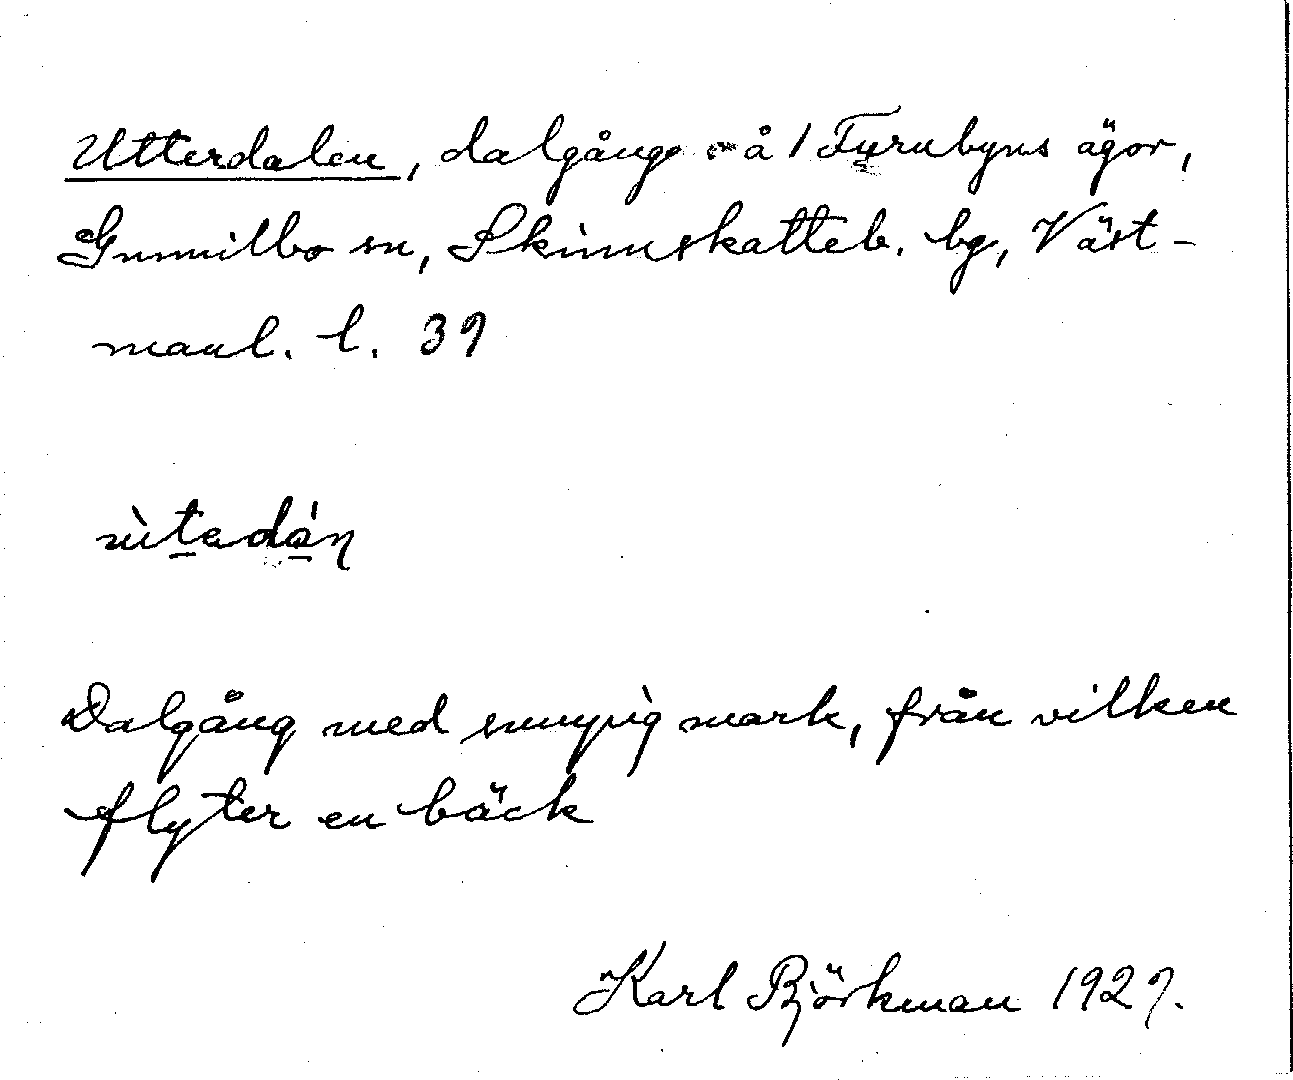 Utterdalen, dalgång å / Färnbyns ägor,
Gunnilbo sn, Skinnskatteb. bg, Väst-
manl. l. 39
Dalgång med sumpig mark, från vilken
flyter en bäck
Karl Björkman 1927.